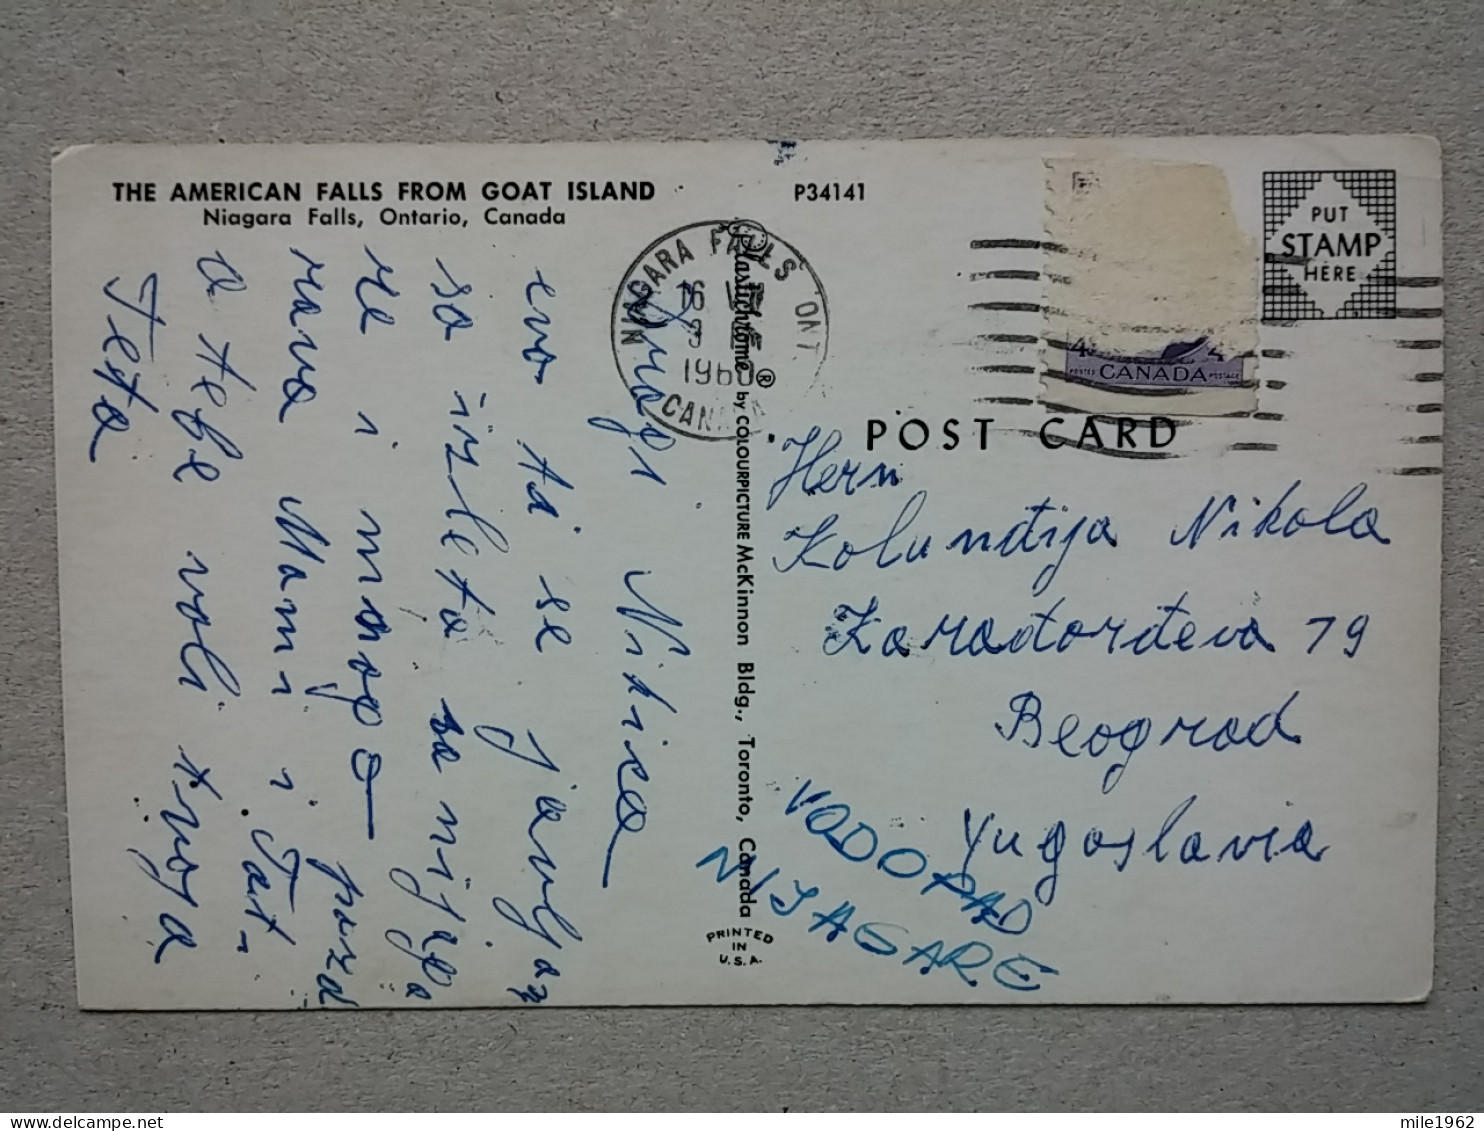 THE AMERICAN FALLS FROM GOAT ISLAND
Niagara Falls, Ontario, Canada
P34141
PUT
STAMP
HERE
NIAGARA FALLS ONT
16
9
1960
CANADA
4 4
POSTES CANADA POSTAGE
POST CARD
Plastichrome® by COLOURPICTURE McKinnon Bldg., Toronto, Canada
PRINTED
IN
U.S.A.
Dragi Nikica
evo ti se javljam
sa izleta sa nijaga
re i mnogo pozd
rava Mami i Tat-
a tebe voli tvoja
Teta
Hern
Kolunđija Nikola
Karađorđeva 79
Beograd
Yugoslavia
VODOPAD
NIJAGARE
mile1962